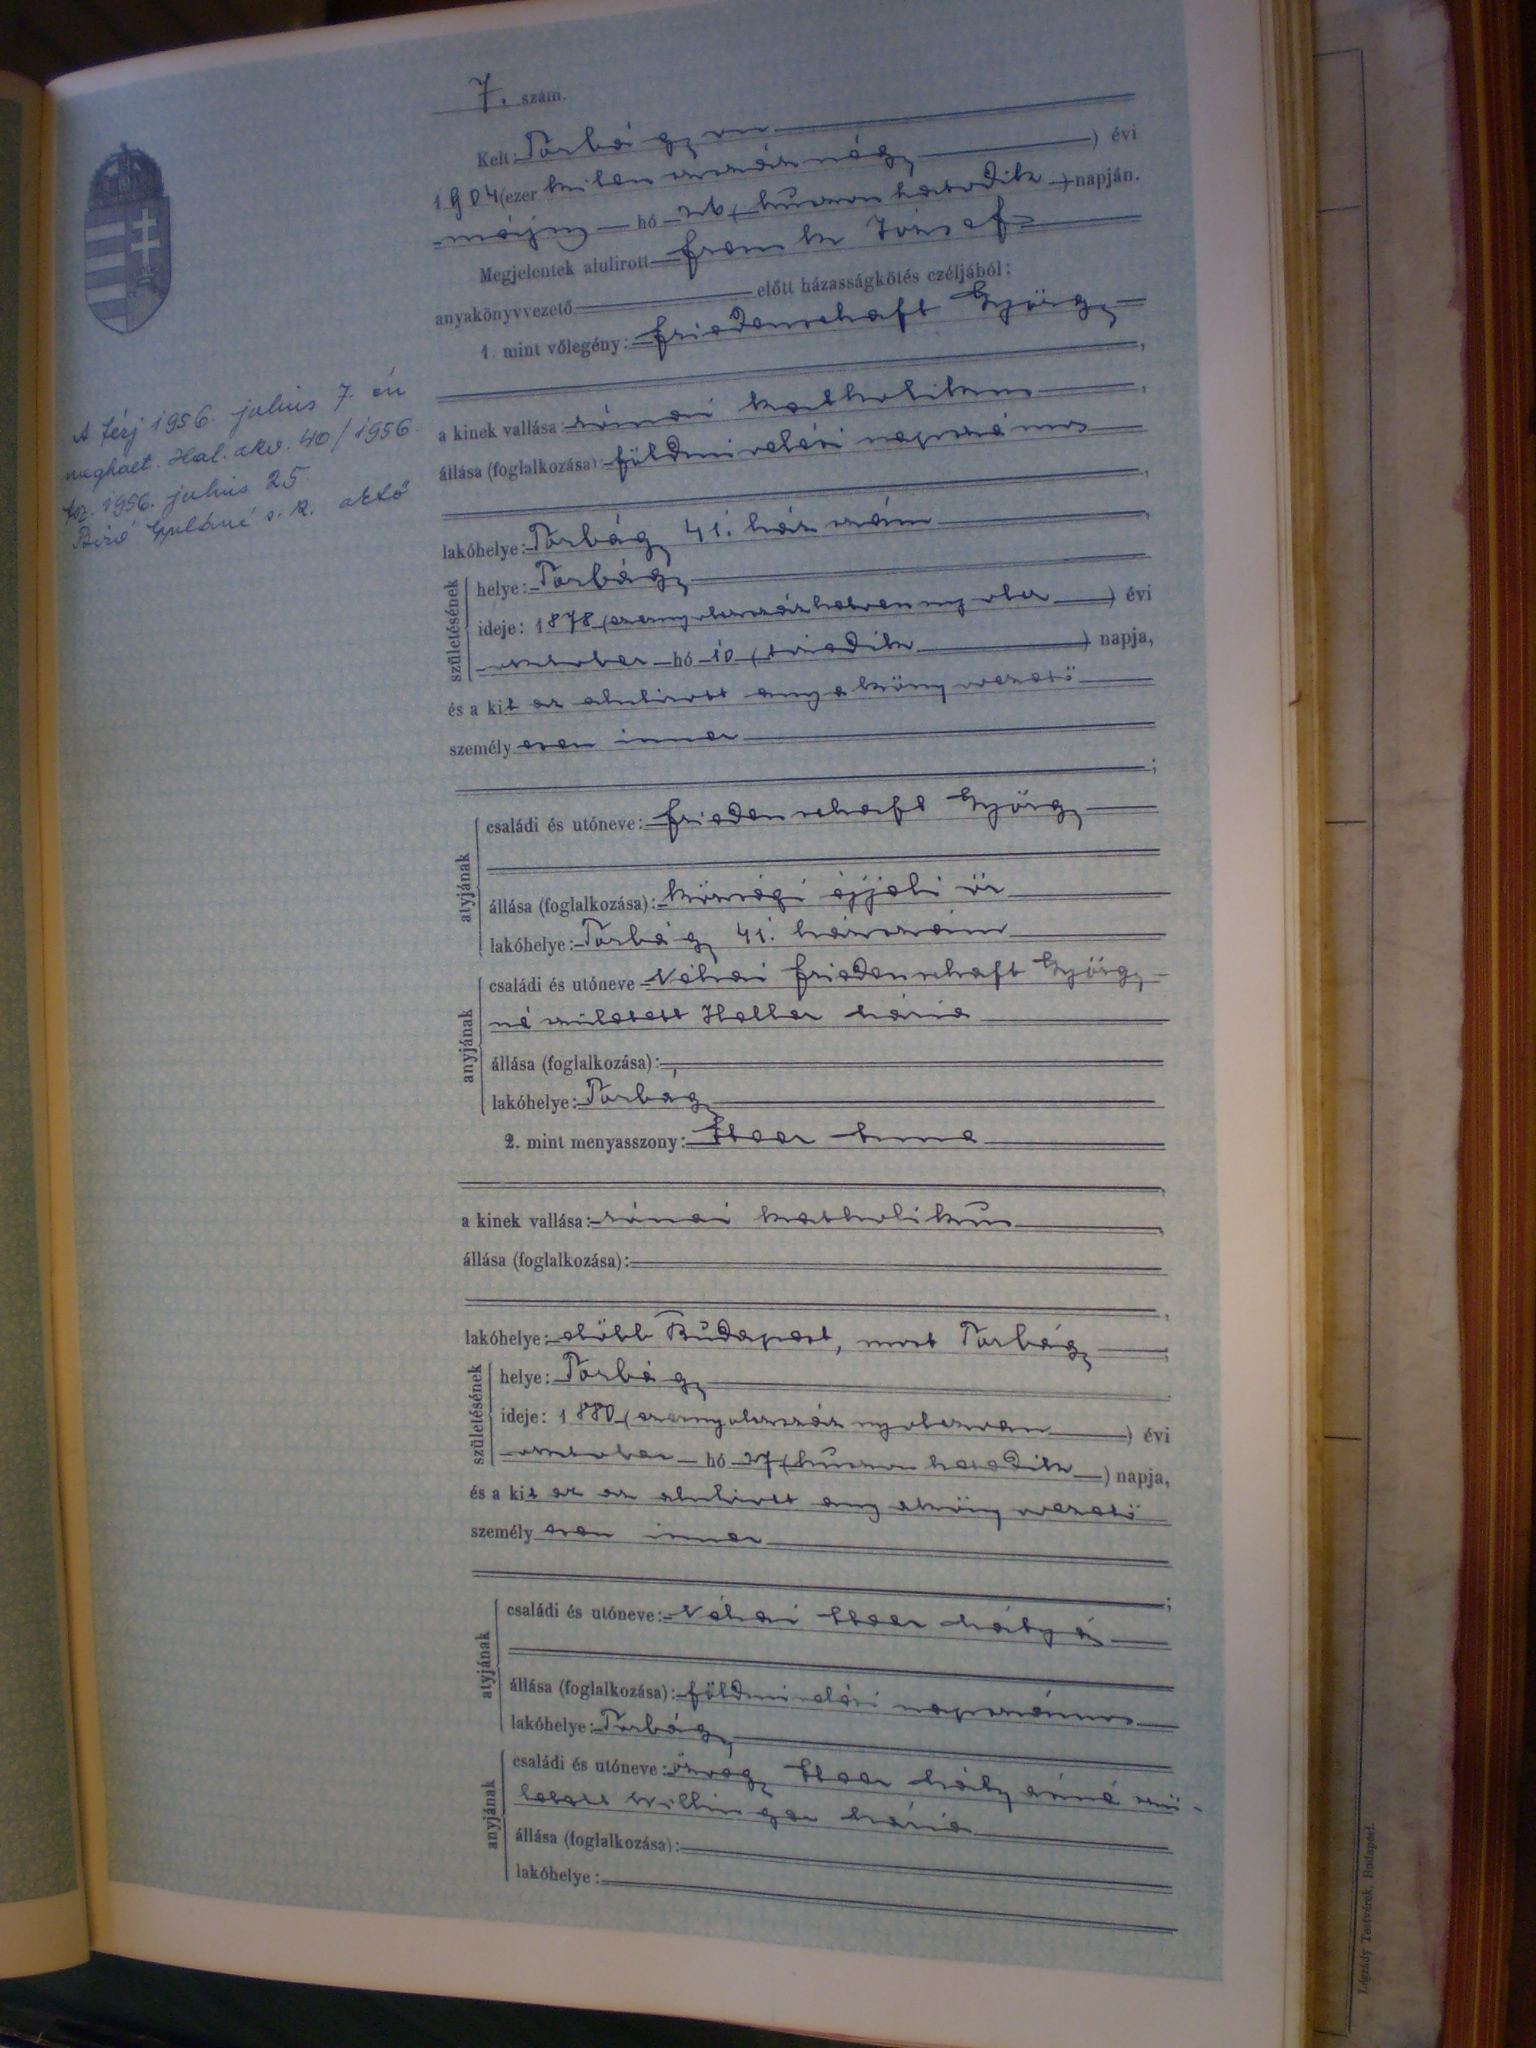 7. szám.
Kelt: Torbágyon
1904 (ezer kilenszáznégy) évi
május hó 26 (huszonhatodik) napján.
Megjelentek alulirott Frank József
anyakönyvvezető előtt házasságkötés czéljából:
1. mint vőlegény: Friedenschaft György
a kinek vallása: római katholikus
állása (foglalkozása): földmivelési napszámos
lakóhelye: Torbágy 41. ház szám
születésének
helye: Torbágy
ideje: 1878 (ezernyolczszázhetvennyolcz) évi
október hó 10 (tizedik) napja,
és a kit az alulirott anyakönyvvezető
személyesen ismer
atyjának
családi és utóneve: Friedenschaft György
állása (foglalkozása): községi éjjeli őr
lakóhelye: Torbágy 41. házszám
anyjának
családi és utóneve Néhai Friedenschaft György
né született Haller Mária
állása (foglalkozása):
lakóhelye: Torbagy
2. mint menyasszony: Anna
a kinek vallása: római katholikus
állása (foglalkozása):
lakóhelye: előbb Budapest, most Torbágy
születésének
helye: Torbágy
ideje: 1880 (ezernyolczszáz nyolczvan) évi
október hó 27 (huszon hetedik) napja,
és a kit az az alulirott anyakönyvvezető
személyesen ismer
atyjának
családi és utóneve: Néhai Mátyás
állása (foglalkozása): földmivelési napszámos
lakóhelye: Torbágy
anyjának
családi és utóneve: özvegy Mátyásné szü-
letett Willinger Mária
állása (foglalkozása):
lakóhelye:
A férj 1956. julius 7. én
meghalt. Hal. akv. 40/1956.
1956. julius 25
Biró Gyuláné s. k.
Légrády Testvérek, Budapest.